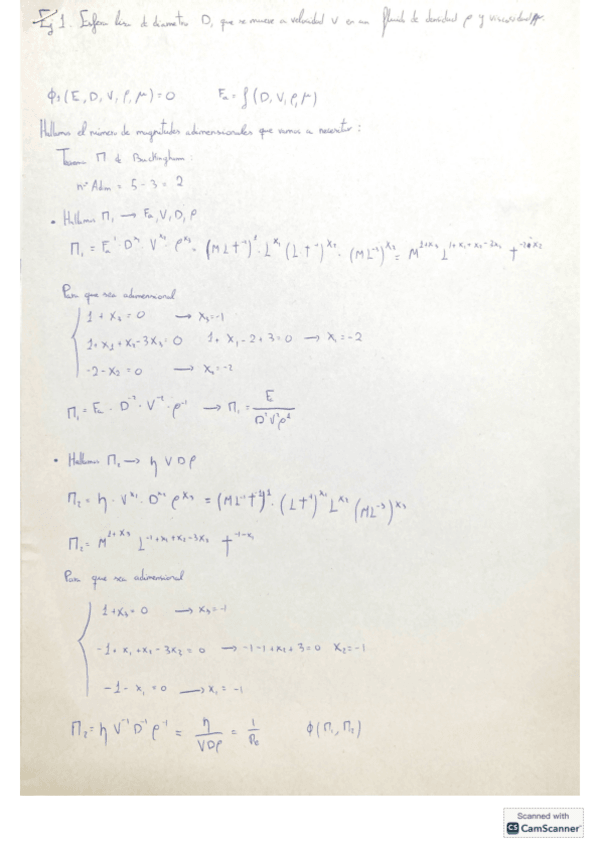 Ej 1. Esfera lisa de diametro D, que se mueve a velocidad V en un fluido de densidad ρ y viscosidad μ.
ϕ₁(E, D, V, ρ, μ) = 0    Fa = f(D, V, ρ, μ)
Hallamos el número de magnitudes adimensionales que vamos a necesitar:
Teorema Π de Buckingham:
nº Adim = 5 - 3 = 2
• Hallamos Π₁ → Fa, V, D, ρ
Π₁ = Fa¹ · D^x₁ · V^x₂ · ρ^x₃ = (MLT⁻²)¹ · L^x₁ (LT⁻¹)^x₂ · (ML⁻³)^x₃ = M^1+x₃ L^1+x₁+x₂-3x₃ T^-2-x₂
Para que sea adimensional
1 + x₃ = 0 → x₃ = -1
1 + x₁ + x₂ - 3x₃ = 0    1 + x₁ - 2 + 3 = 0 → x₁ = -2
-2 - x₂ = 0 → x₂ = -2
Π₁ = Fa · D⁻² · V⁻² · ρ⁻¹ → Π₁ = E / D²V²ρ¹
• Hallamos Π₂ → η V D ρ
Π₂ = η · V^x₁ · D^x₂ ρ^x₃ = (ML⁻¹T⁻¹)¹ · (LT⁻¹)^x₁ L^x₂ (ML⁻³)^x₃
Π₂ = M^1+x₃ L^-1+x₁+x₂-3x₃ T^-1-x₁
Para que sea adimensional
1 + x₃ = 0 → x₃ = -1
-1 + x₁ + x₂ - 3x₃ = 0 → -1 -1 + x₂ + 3 = 0  x₂ = -1
-1 - x₁ = 0 → x₁ = -1
Π₂ = η V⁻¹ D⁻¹ ρ⁻¹ = η / VDρ = 1 / Re    ϕ(Π₁, Π₂)
Scanned with
CS CamScanner